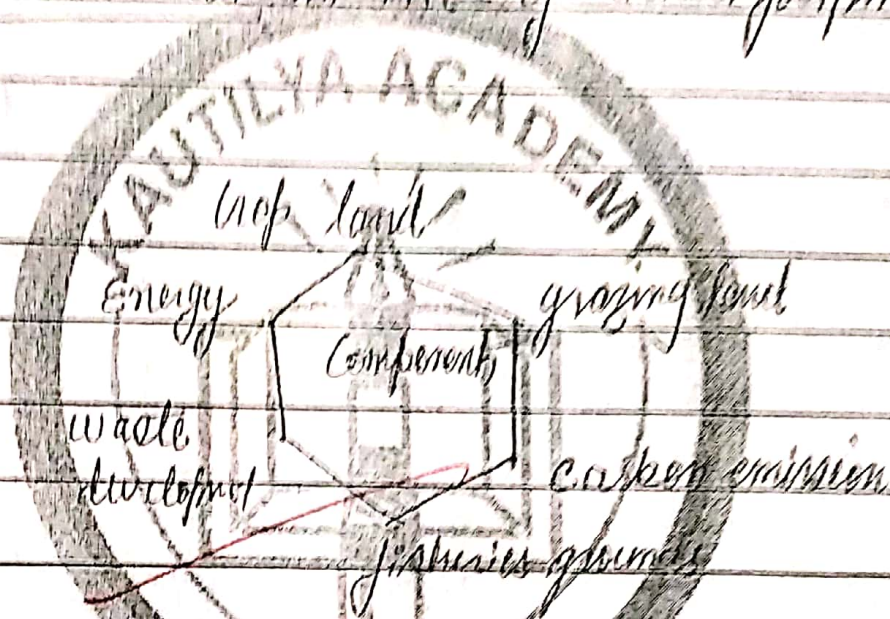 KAUTILYA ACADEMY
Crop land
Energy
grazing land
Components
waste
carbon emission
fisheries grounds